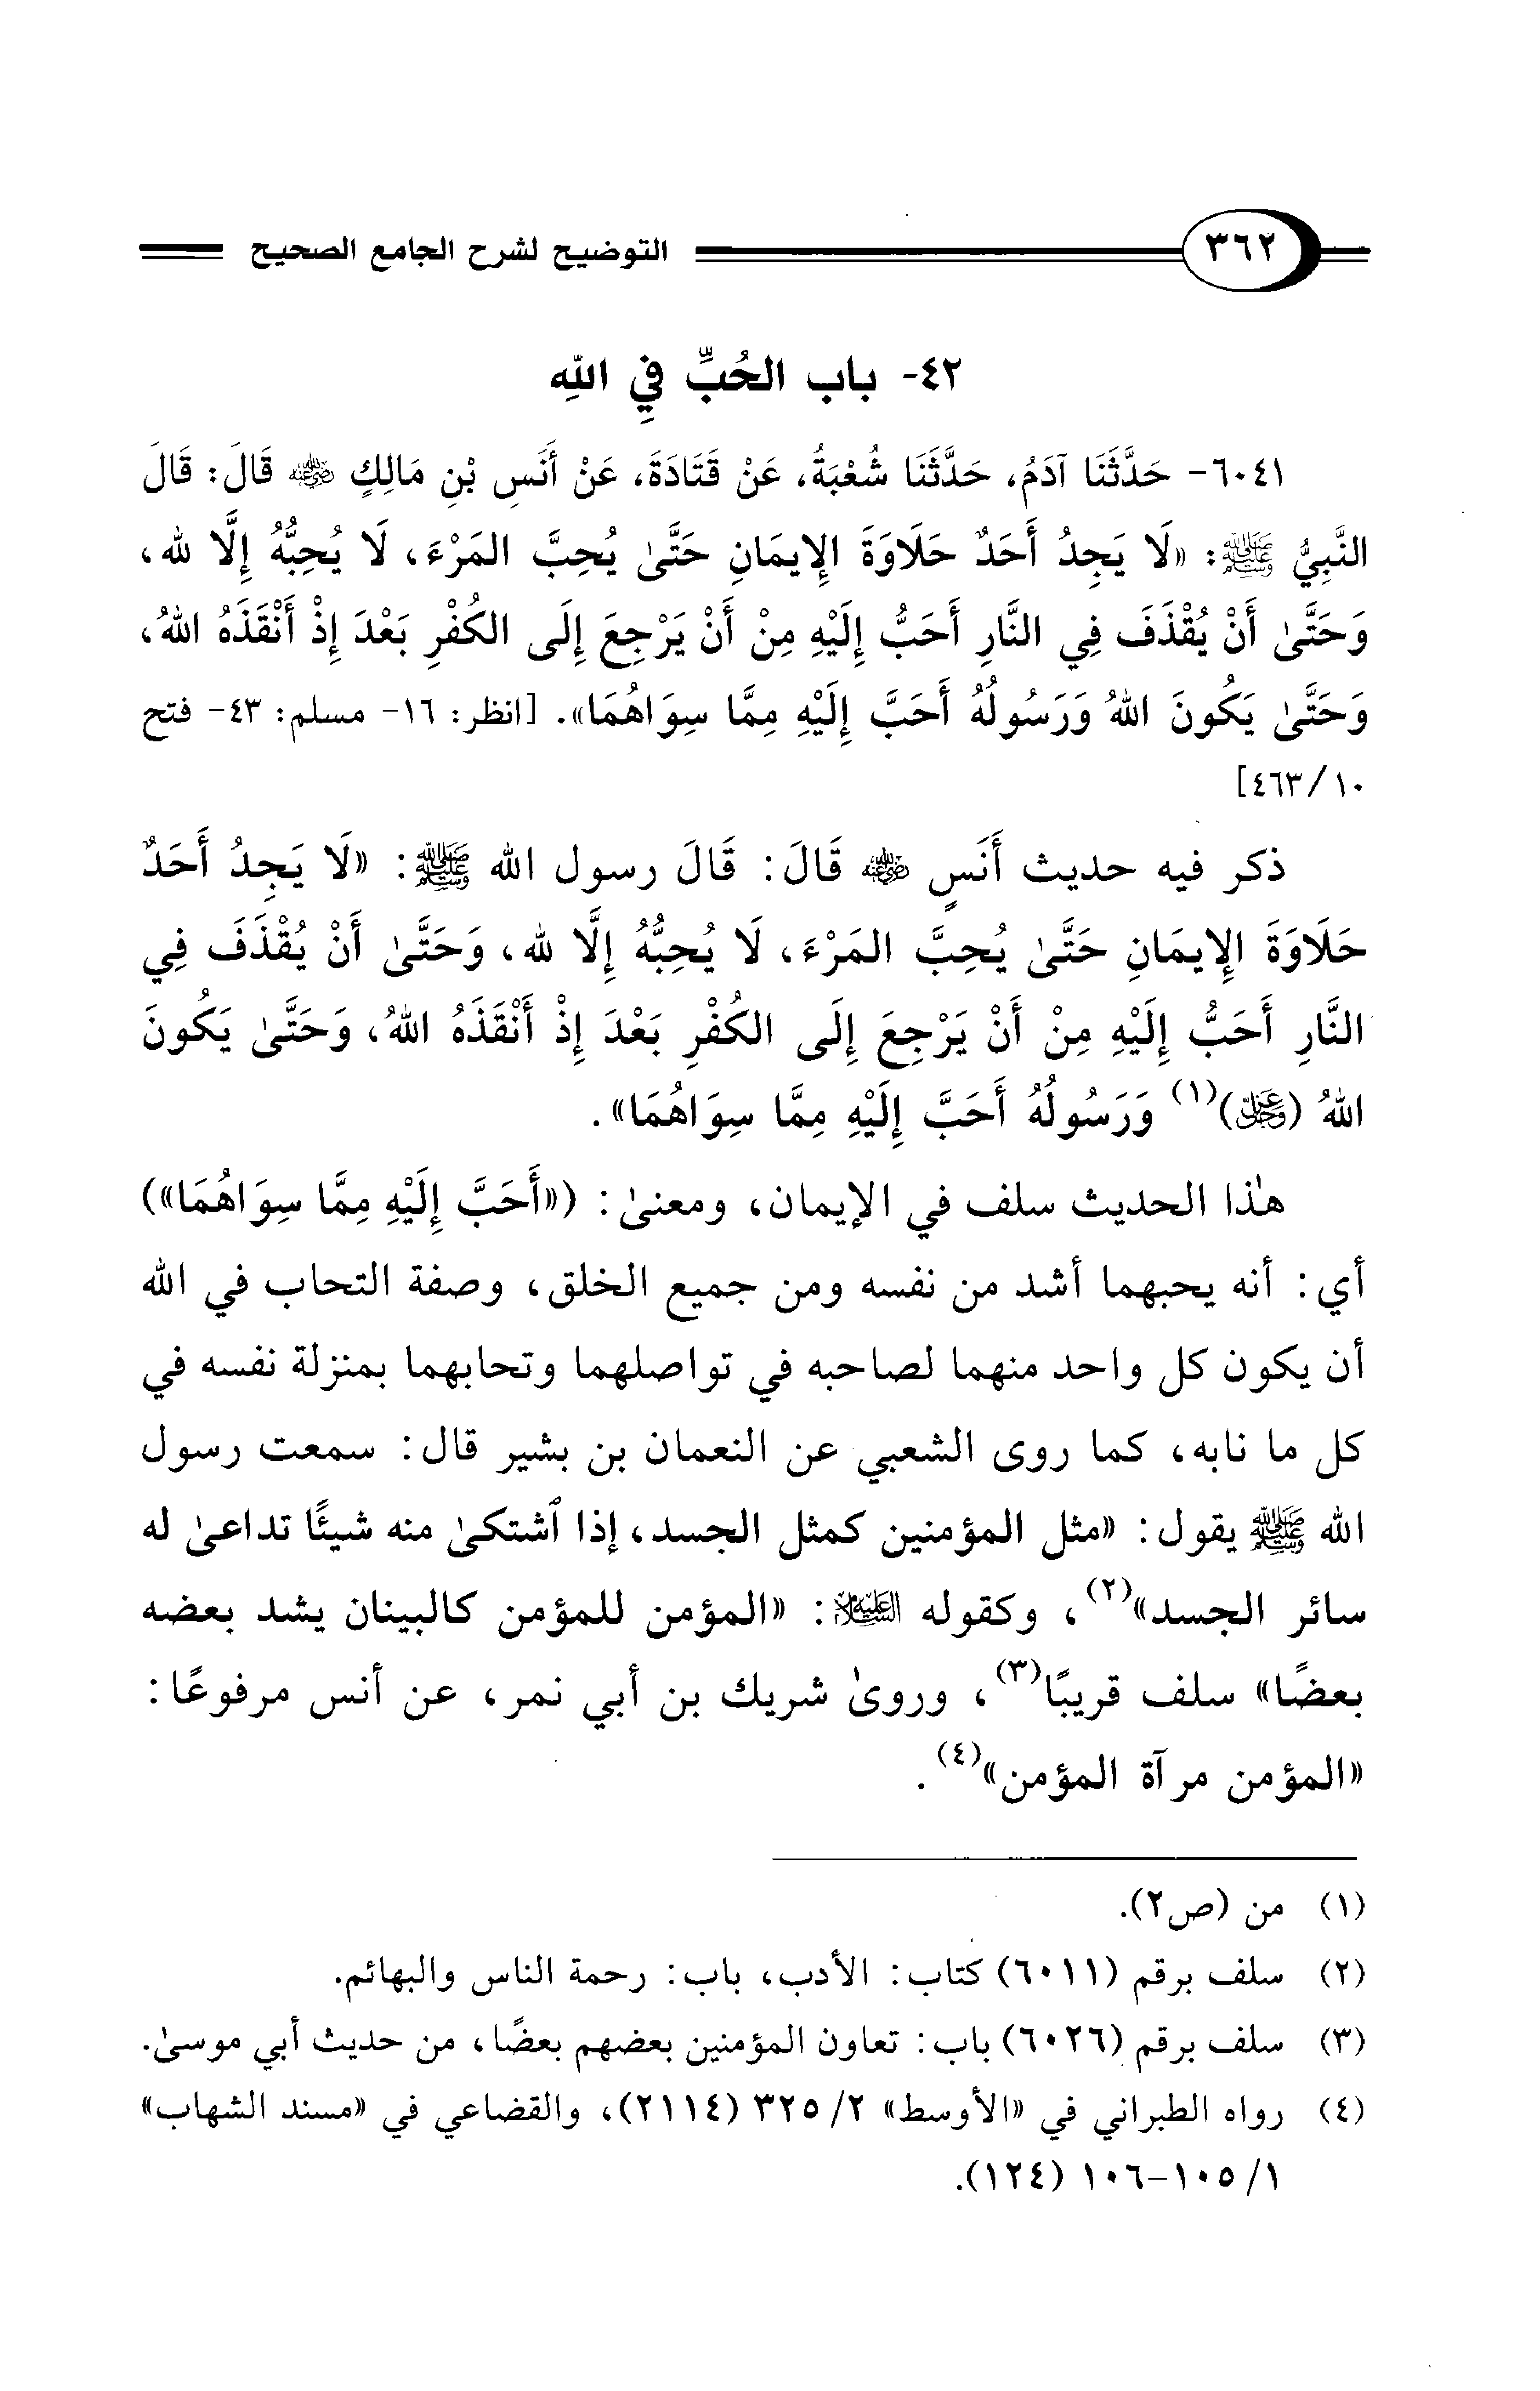 ٣٦٢ التوضيح لشرح الجامع الصحيح
٤٢- باب الحُبِّ فِي اللهِ
٦٠٤١- حَدَّثَنَا آدَمُ، حَدَّثَنَا شُعْبَةُ، عَنْ قَتَادَةَ، عَنْ أَنَسِ بْنِ مَالِكٍ رضي الله عنه قَالَ: قَالَ
النَّبِيُّ ﷺ: «لَا يَجِدُ أَحَدٌ حَلَاوَةَ الإِيمَانِ حَتَّىٰ يُحِبَّ المَرْءَ، لَا يُحِبُّهُ إِلَّا لله،
وَحَتَّىٰ أَنْ يُقْذَفَ فِي النَّارِ أَحَبُّ إِلَيْهِ مِنْ أَنْ يَرْجِعَ إِلَى الكُفْرِ بَعْدَ إِذْ أَنْقَذَهُ اللهُ،
وَحَتَّىٰ يَكُونَ اللهُ وَرَسُولُهُ أَحَبَّ إِلَيْهِ مِمَّا سِوَاهُمَا». [انظر: ١٦- مسلم: ٤٣- فتح
١٠/٤٦٣]
ذكر فيه حديث أَنَسٍ رضي الله عنه قَالَ: قَالَ رسول الله ﷺ: «لَا يَجِدُ أَحَدٌ
حَلَاوَةَ الإِيمَانِ حَتَّىٰ يُحِبَّ المَرْءَ، لَا يُحِبُّهُ إِلَّا لله، وَحَتَّىٰ أَنْ يُقْذَفَ فِي
النَّارِ أَحَبُّ إِلَيْهِ مِنْ أَنْ يَرْجِعَ إِلَى الكُفْرِ بَعْدَ إِذْ أَنْقَذَهُ اللهُ، وَحَتَّىٰ يَكُونَ
اللهُ (عز وجل)(١) وَرَسُولُهُ أَحَبَّ إِلَيْهِ مِمَّا سِوَاهُمَا».
هٰذا الحديث سلف في الإيمان، ومعنىٰ: («أَحَبَّ إِلَيْهِ مِمَّا سِوَاهُمَا»)
أي: أنه يحبهما أشد من نفسه ومن جميع الخلق، وصفة التحاب في الله
أن يكون كل واحد منهما لصاحبه في تواصلهما وتحابهما بمنزلة نفسه في
كل ما نابه، كما روى الشعبي عن النعمان بن بشير قال: سمعت رسول
الله ﷺ يقول: «مثل المؤمنين كمثل الجسد، إذا ٱشتكىٰ منه شيئًا تداعىٰ له
سائر الجسد»(٢)، وكقوله عليه السلام: «المؤمن للمؤمن كالبينان يشد بعضه
بعضًا» سلف قريبًا(٣)، وروىٰ شريك بن أبي نمر، عن أنس مرفوعًا:
«المؤمن مرآة المؤمن»(٤).
(١) من (ص٢).
(٢) سلف برقم (٦٠١١) كتاب: الأدب، باب: رحمة الناس والبهائم.
(٣) سلف برقم (٦٠٢٦) باب: تعاون المؤمنين بعضهم بعضًا، من حديث أبي موسىٰ.
(٤) رواه الطبراني في «الأوسط» ٢/ ٣٢٥ (٢١١٤)، والقضاعي في «مسند الشهاب»
١/ ١٠٥-١٠٦ (١٢٤).